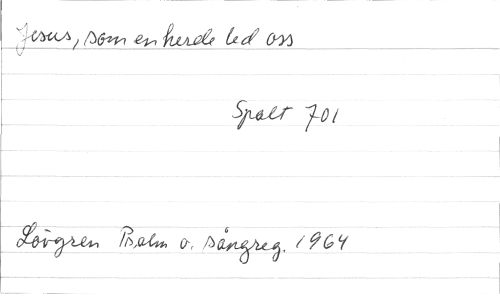 Jesus, som en herde led oss
Spalt 701
Lövgren Psalm o. sångreg. 1964